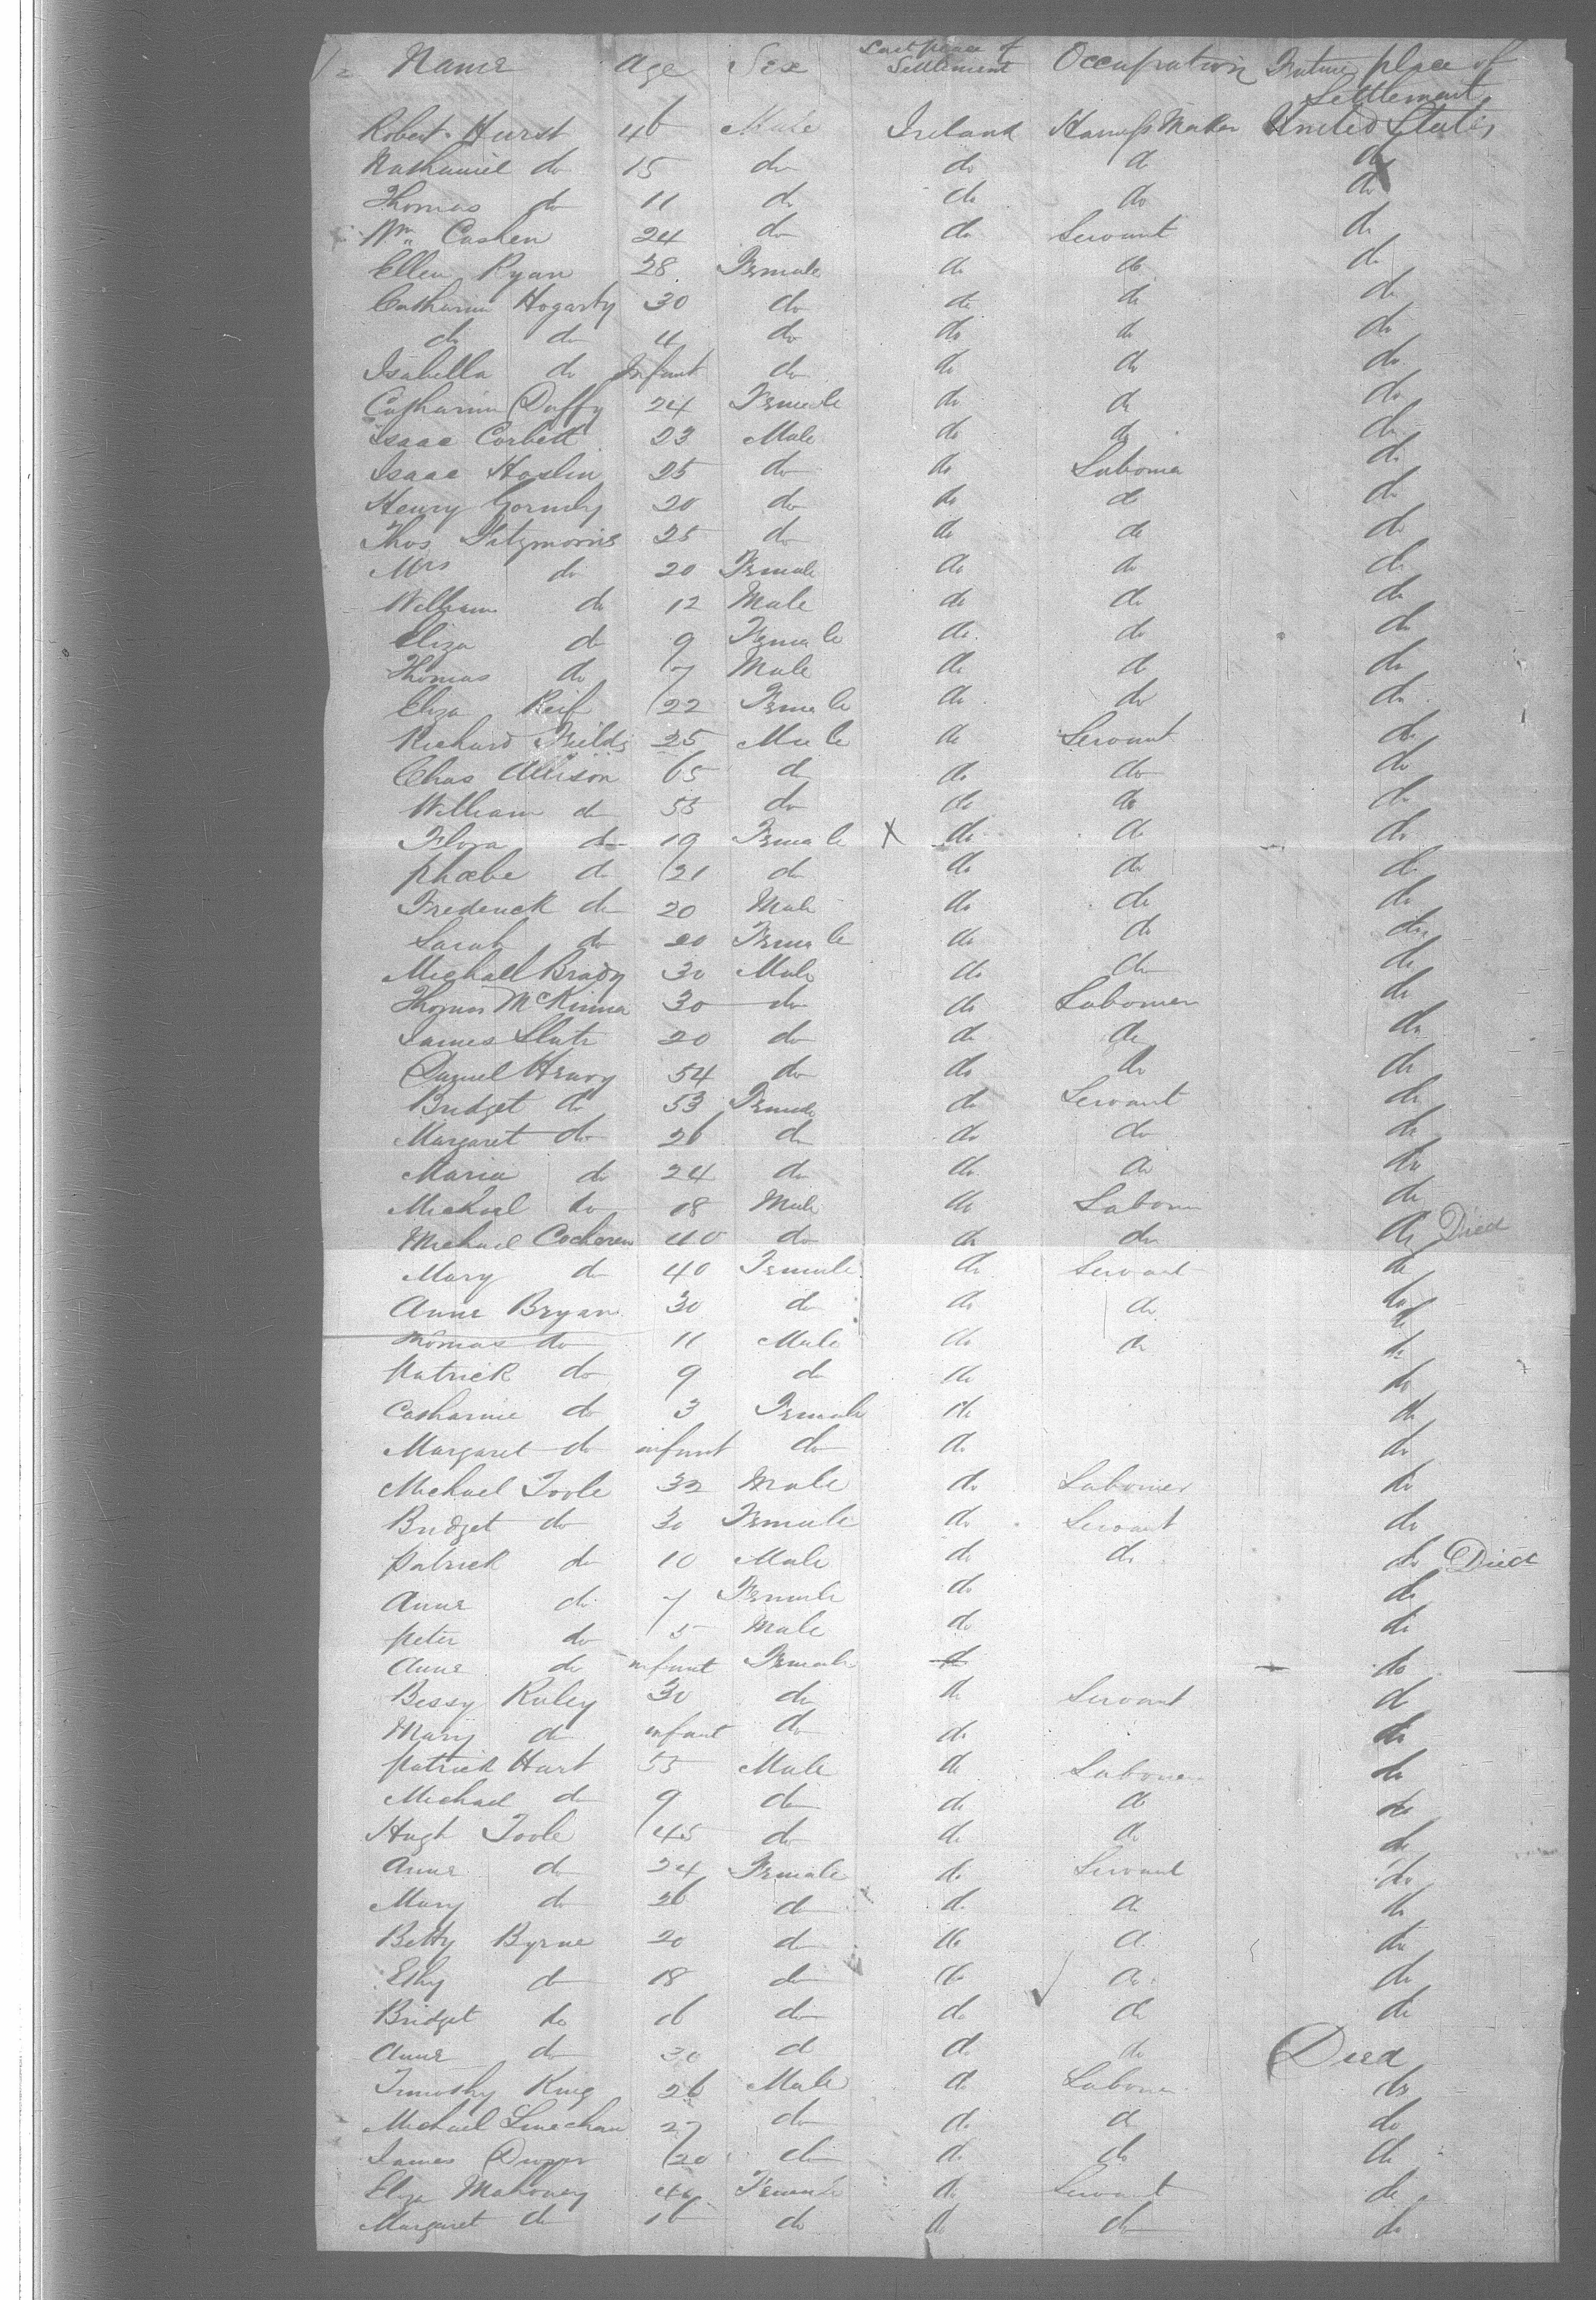 Name Age Sex Last place of Settlement Occupation Future place of Settlement
Robert Hurst 46 Male Ireland Harness Maker United States
Nathaniel do 15 do do do do
Thomas do 11 do do do do
Wm Cashen 24 do do Servant do
Ellen Ryan 28 Female do do do
Catharine Hogarty 30 do do do do
do do 4 do do do do
Isabella do Infant do do do do
Catharine Duffy 24 Female do do do
Isaac Corbett 23 Male do do do
Isaac Haslin 25 do do Labourer do
Henry Gormly 20 do do do do
Thos Fitzmorris 25 do do do do
Mrs do 20 Female do do do
William do 12 Male do do do
Eliza do 9 Female do do do
Thomas do 7 Male do do do
Eliza Reif 22 Female do do do
Richard Fields 25 Male do Servant do
Chas Allison 65 do do do do
William do 55 do do do do
Flora do 19 Female X do do do
Phœbe do 21 do do do do
Frederick do 20 Male do do do
Sarah do 20 Female do do do
Michall Brady 30 Male do do do
Thomas McKinna 30 do do Labourer do
James 20 do do do do
Daniel Henry 54 do do do do
Bridget do 53 Female do Servant do
Margaret do 26 do do do do
Maria do 24 do do do do
Michael do 18 Male do Labour do
Michael Cocheren 40 do do do do Died
Mary do 40 Female do Servant do
Anne Bryan 30 do do do do
Thomas do 11 Male do do do
Patrick do 9 do do do
Catharine do 3 Female do do
Margaret do infant do do do
Michael Toole 32 Male do Labourer do
Bridget do 30 Female do Servant do
Patrick do 10 Male do do do Died
Anne do 7 Female do do
Peter do 5 Male do do
Anne do infant Female do do
Bessy Ruley 30 do do Servant do
Mary do infant do do do
Patrick Hart 55 Male do Labourer do
Michael do 9 do do do do
Hugh Toole 45 do do do do
Anne do 24 Female do Servant do
Mary do 26 do do do do
Betty Byrne 20 do do do do
do 18 do do do do
Bridget do 16 do do do do
Anne do 30 do do do Died
Timothy King 26 Male do Labourer do
Michael Linechan 27 do do do do
James 20 do do do do
Eliza Mahoney 40 Female do Servant do
Margaret do 16 do do do do